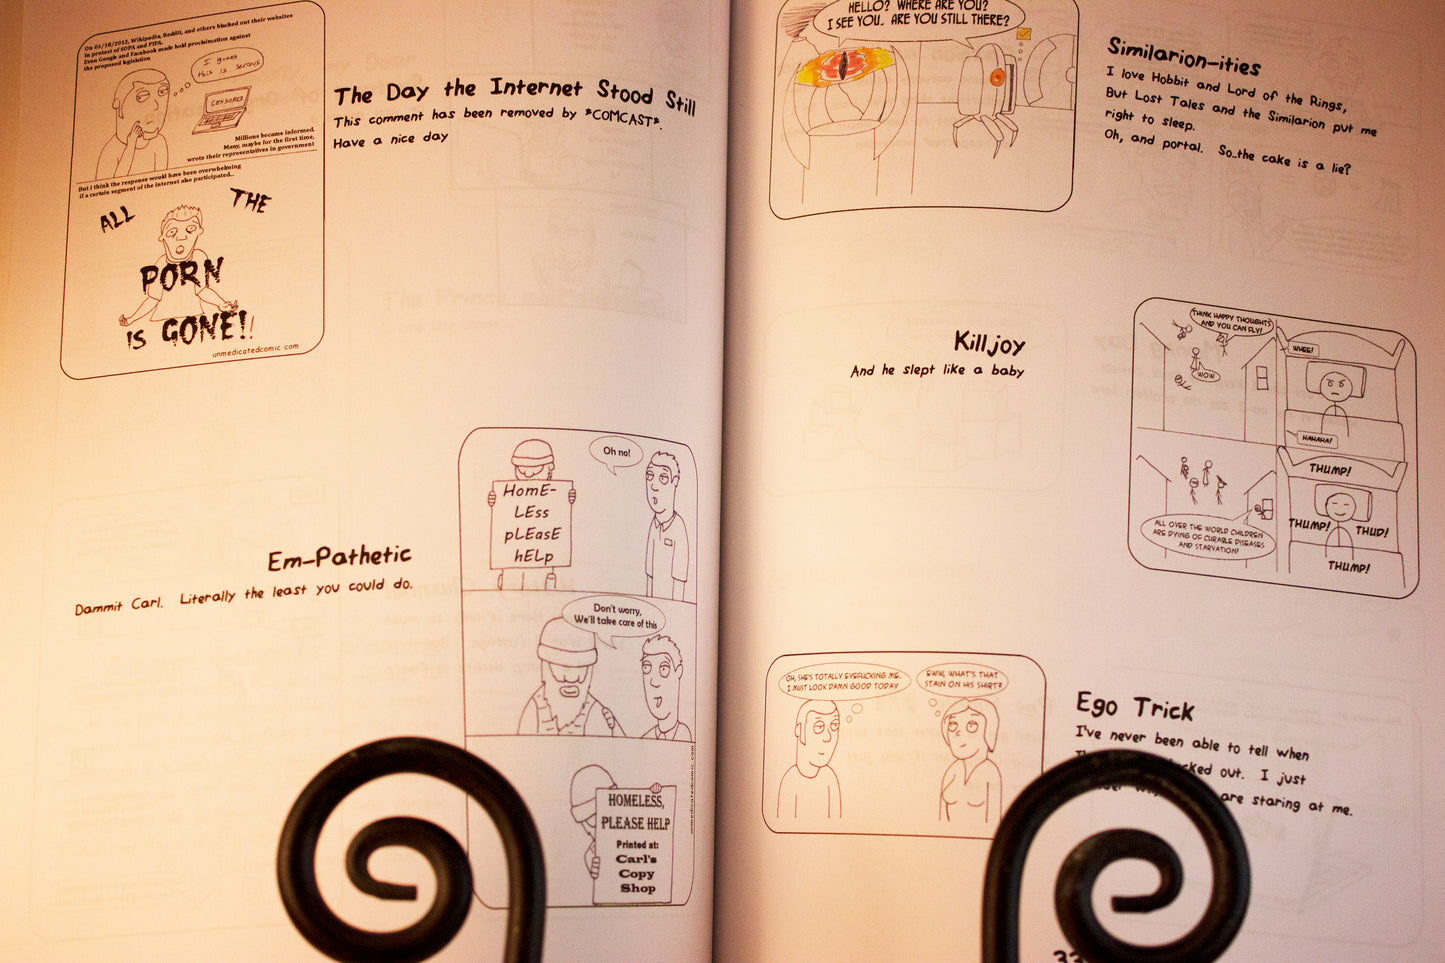 On 01/18/2012, Wikipedia, Reddit, and others blacked out their websites
In protest of SOPA and PIPA.
Even Google and Facebook made bold proclimation against
the proposed legislation
I guess
this is serious
CENSORED
Millions became informed.
Many, maybe for the first time,
wrote their representatives in government
But I think the response would have been overwhelming
if a certain segment of the internet also participated...
ALL THE
PORN
IS GONE!!
unmedicatedcomic.com
The Day the Internet Stood Still
This comment has been removed by *COMCAST*.
Have a nice day
Em-Pathetic
Dammit Carl. Literally the least you could do.
HomE-
LEss
pLEasE
hELp
Oh no!
Don't worry,
We'll take care of this
HOMELESS,
PLEASE HELP
Printed at:
Carl's
Copy
Shop
unmedicatedcomic.com
HELLO? WHERE ARE YOU?
I SEE YOU. ARE YOU STILL THERE?
Similarion-ities
I love Hobbit and Lord of the Rings,
But Lost Tales and the Similarion put me
right to sleep.
Oh, and portal. So..the cake is a lie?
Killjoy
And he slept like a baby
THINK HAPPY THOUGHTS
AND YOU CAN FLY!
WOW
WHEE!
HAHAHA!
ALL OVER THE WORLD CHILDREN
ARE DYING OF CURABLE DISEASES
AND STARVATION!
THUMP!
THUMP! THUD!
THUMP!
OH, SHE'S TOTALLY EYEFUCKING ME.
I MUST LOOK DAMN GOOD TODAY
EWW, WHAT'S THAT
STAIN ON HIS SHIRT?
Ego Trick
I've never been able to tell when
out. I just
are staring at me.